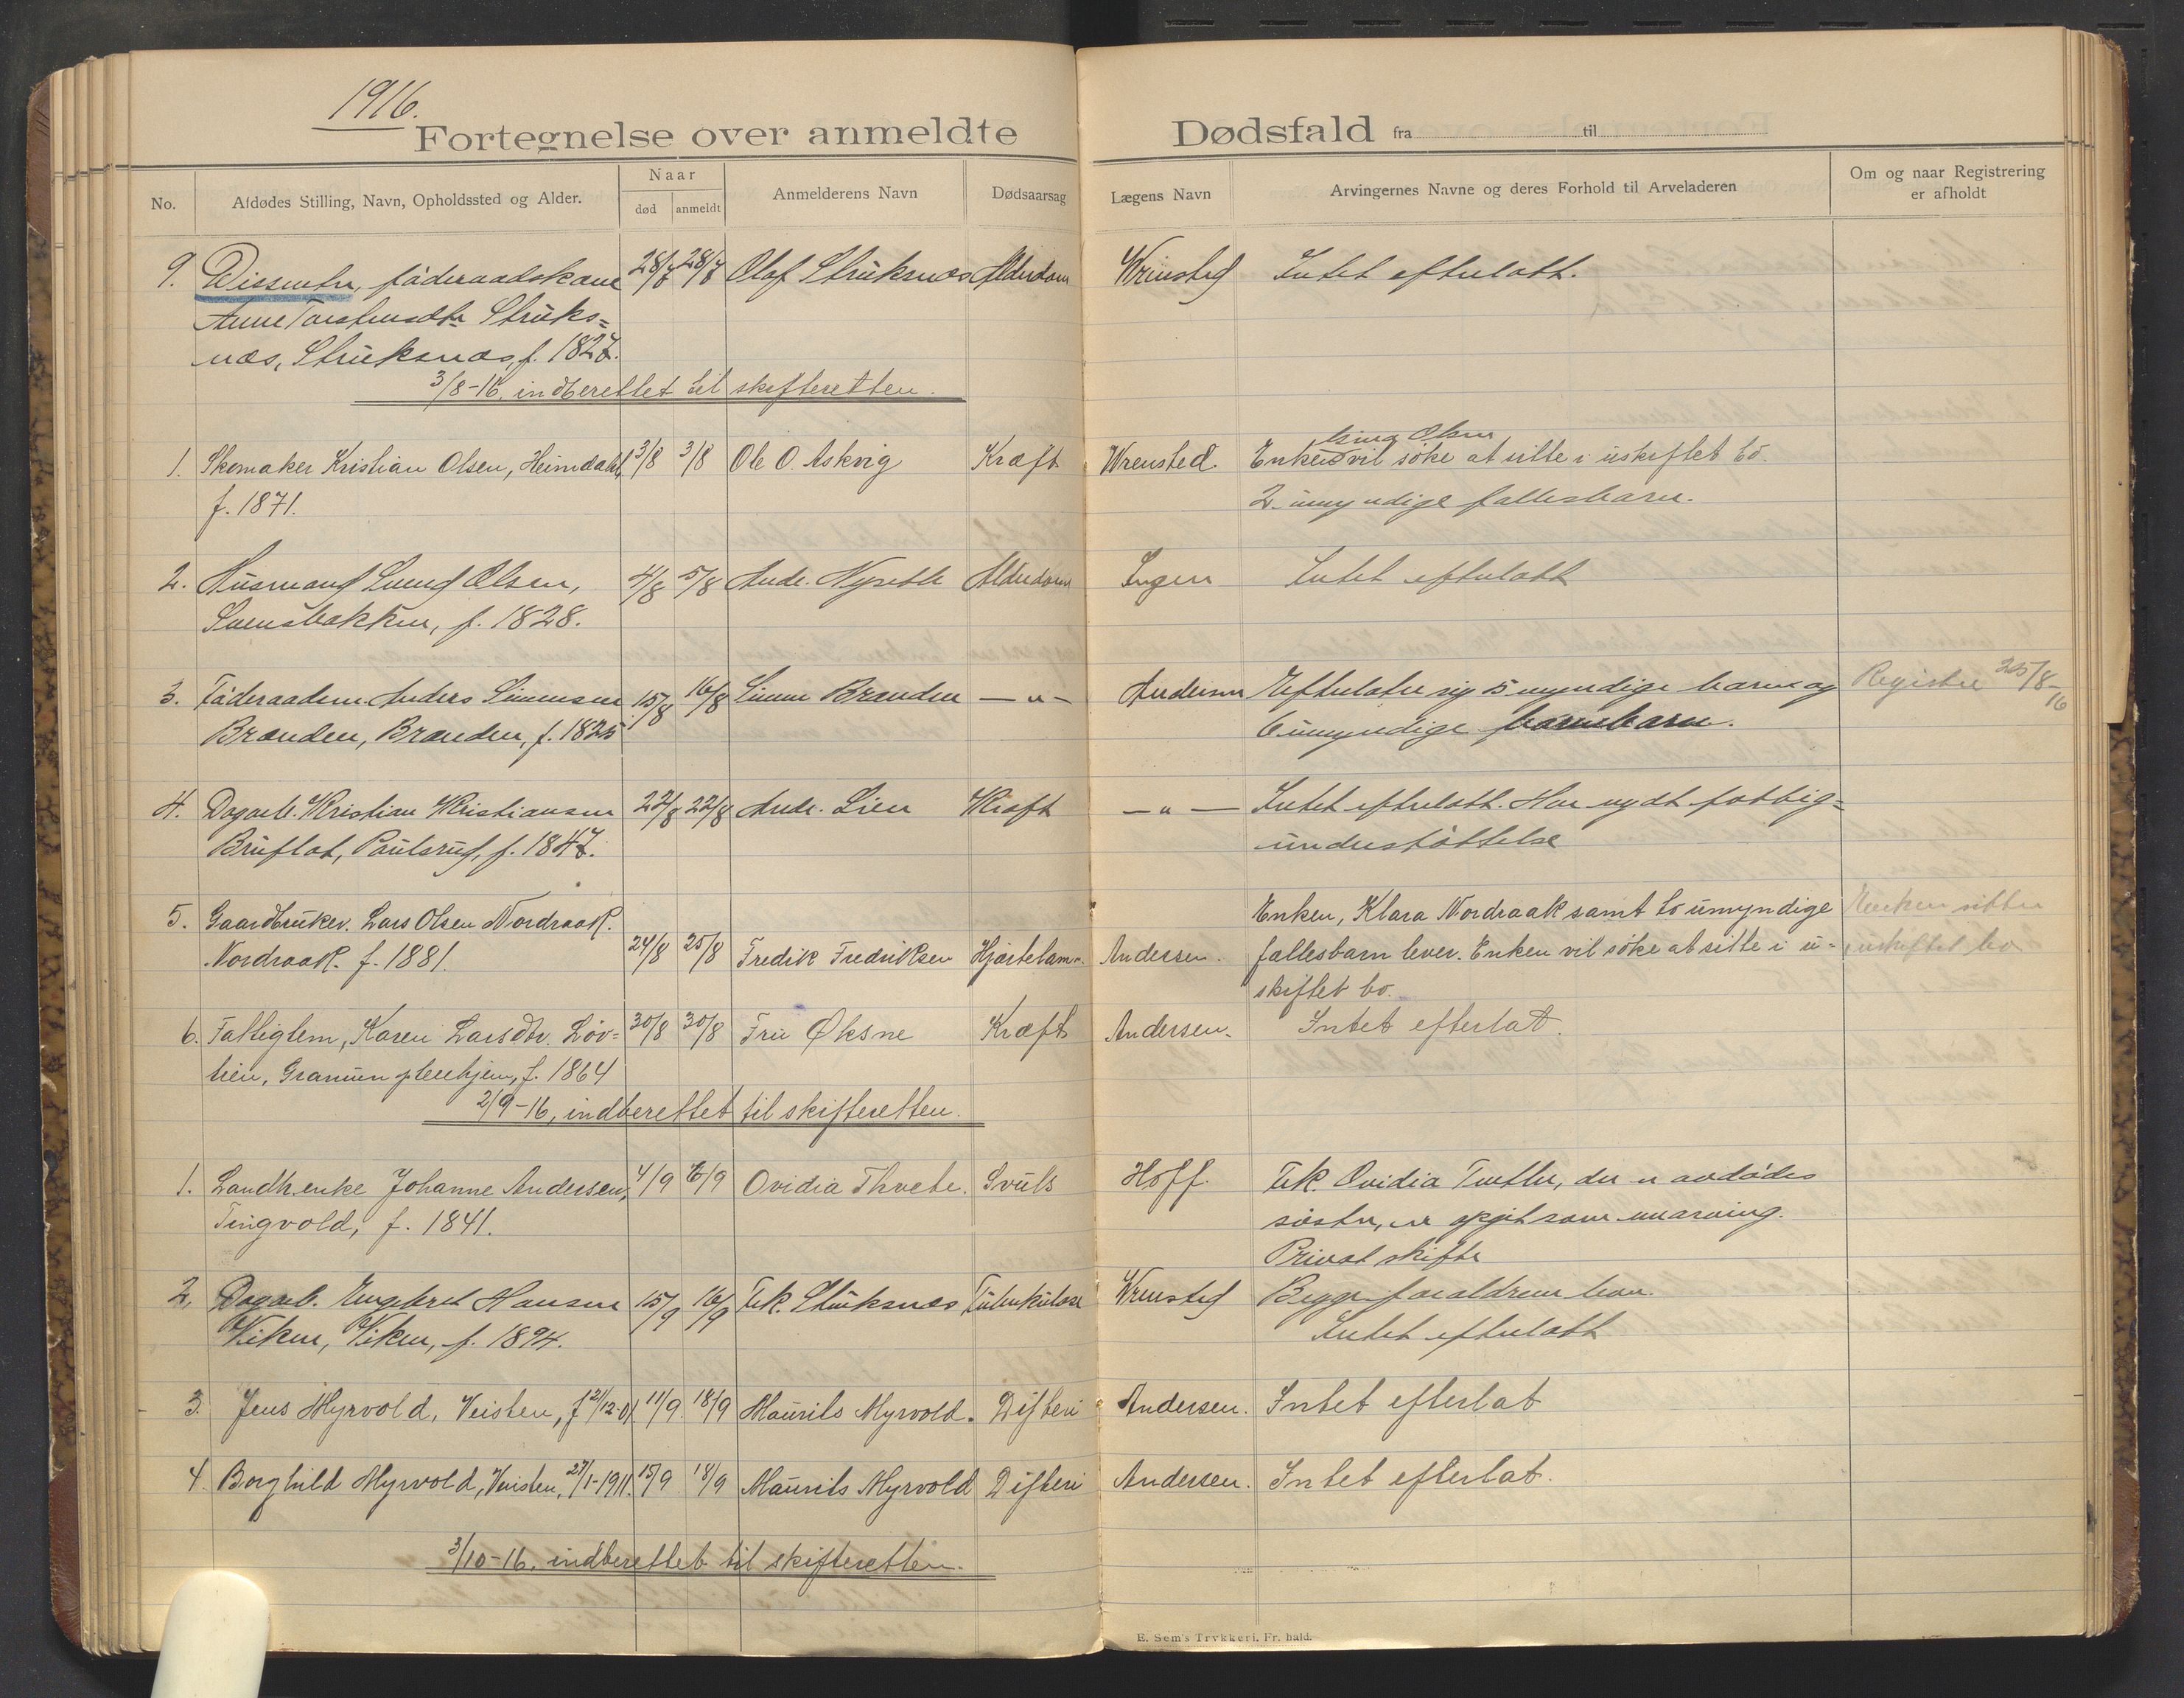 1916.
Fortegnelse over anmeldte Dødsfald fra til
No. Afdødes Stilling, Navn, Opholdssted og Alder. Naar død anmeldt Anmelderens Navn Dødsaarsag Lægens Navn Arvingernes Navne og deres Forhold til Arveladeren Om og naar Registrering er afholdt
9. Dissenter, föderaadskone 28/7 28/7 Olaf Strüksnæs Alderdom Wrensted Intet efterlatt.
Anne Torstensdtr Strüks=
næs, Strüksnæs, f. 1827.
3/8-16, indberettet til skifteretten.
1. Skomaker Kristian Olsen, Heimdahl, 3/8 3/8 Ole O. Askvig Kræft Wrensted. Enken vil söke at sitte i üskiftet bo.
f. 1871. 2 ümyndige fællesbarn.
2. Hüsmand Svend Olsen, 4/8 5/8 Andr. Nysetli Alderdom Ingen Intet efterlatt
Svensbakken, f. 1828.
3. Föderaadsm. Anders Simensen 15/8 16/8 Simen Brænden — " — Andersen Efterlater sig 5 myndige barn og Registre 25/8-16
Brænden, Brænden, f. 1825 6 ümyndige barnebarn.
4. Dagarb. Kristian Kristiansen 22/8 22/8 Andr. Lien Kræft — " — Intet efterlatt. Har nydt fattig=
Brüflat, Paülsrud, f. 1847. ünderstöttelse
5. Gaardbrüker. Lars Olsen Nordraak. Enken, Klara Nordraak samt to ümyndige Enken sitter
Nordraak. f. 1881. 24/8 25/8 Fredik Fredriksen Hjærtelam. Andersen. fællesbarn lever. Enken vil söke at sitte i ü- i uskiftet bo
skiftet bo.
6. Fattiglem, Karen Larsdtr. Löv= 30/8 30/8 Frü Øksne Kræft Andersen. Intet efterlat.
lien, Granüm pleiehjem, f. 1864
2/9-16, indberettet til skifteretten.
1. Landh.enke Johanne Andersen, 4/9 6/9 Ovidia Thvete. Svüls Hoff. Frk. Ovidia Tvetter, der er avdödes
Tingvold, f. 1841. söster, er opgit som enearving.
Privat skifte
2. Dagarb. Engebret Hansen 15/9 16/9 Frk. Strüksnæs Tüberkülose Wrensted Begge forældrene lever.
Viken, Viken, f. 1894. Intet efterlatt
3. Jens Myrvold, Veisten, f 21/12-01. 11/9 18/9 Maürits Myrvold. Difteri Andersen. Intet efterlat
4. Borghild Myrvold, Veisten, 27/1-1911. 15/9 18/9 Maürits Myrvold Difteri Andersen. Intet efterlat.
3/10-16. indberettet til skifteretten.
E. Sem's Trykkeri, Fr. hald.